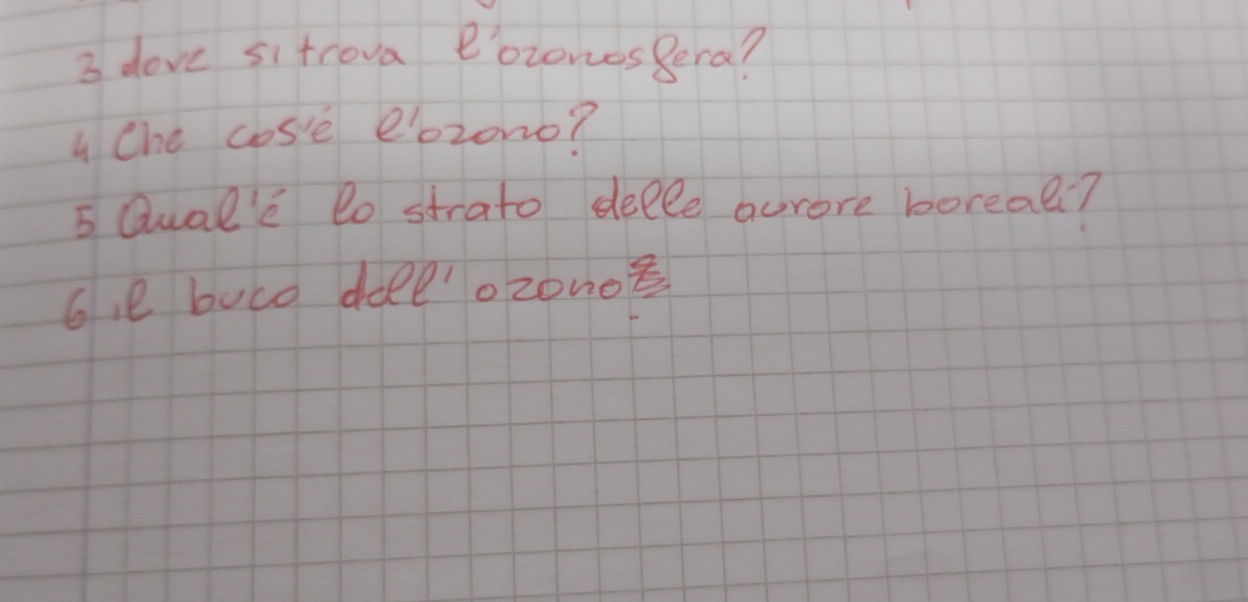 3 dove si trova l'ozonosfera?
4 Che cos'è l'ozono?
5 Qual'è lo strato delle aurore boreali?
6 il buco dell'ozono